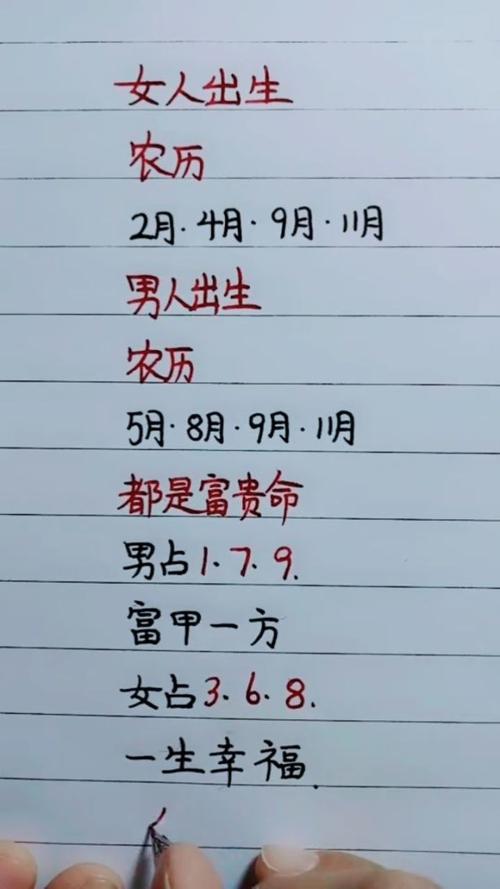 女人出生
农历
2月·4月·9月·11月
男人出生
农历
5月·8月·9月·11月
都是富贵命
男占1.7.9.
富甲一方
女占3.6.8.
一生幸福.